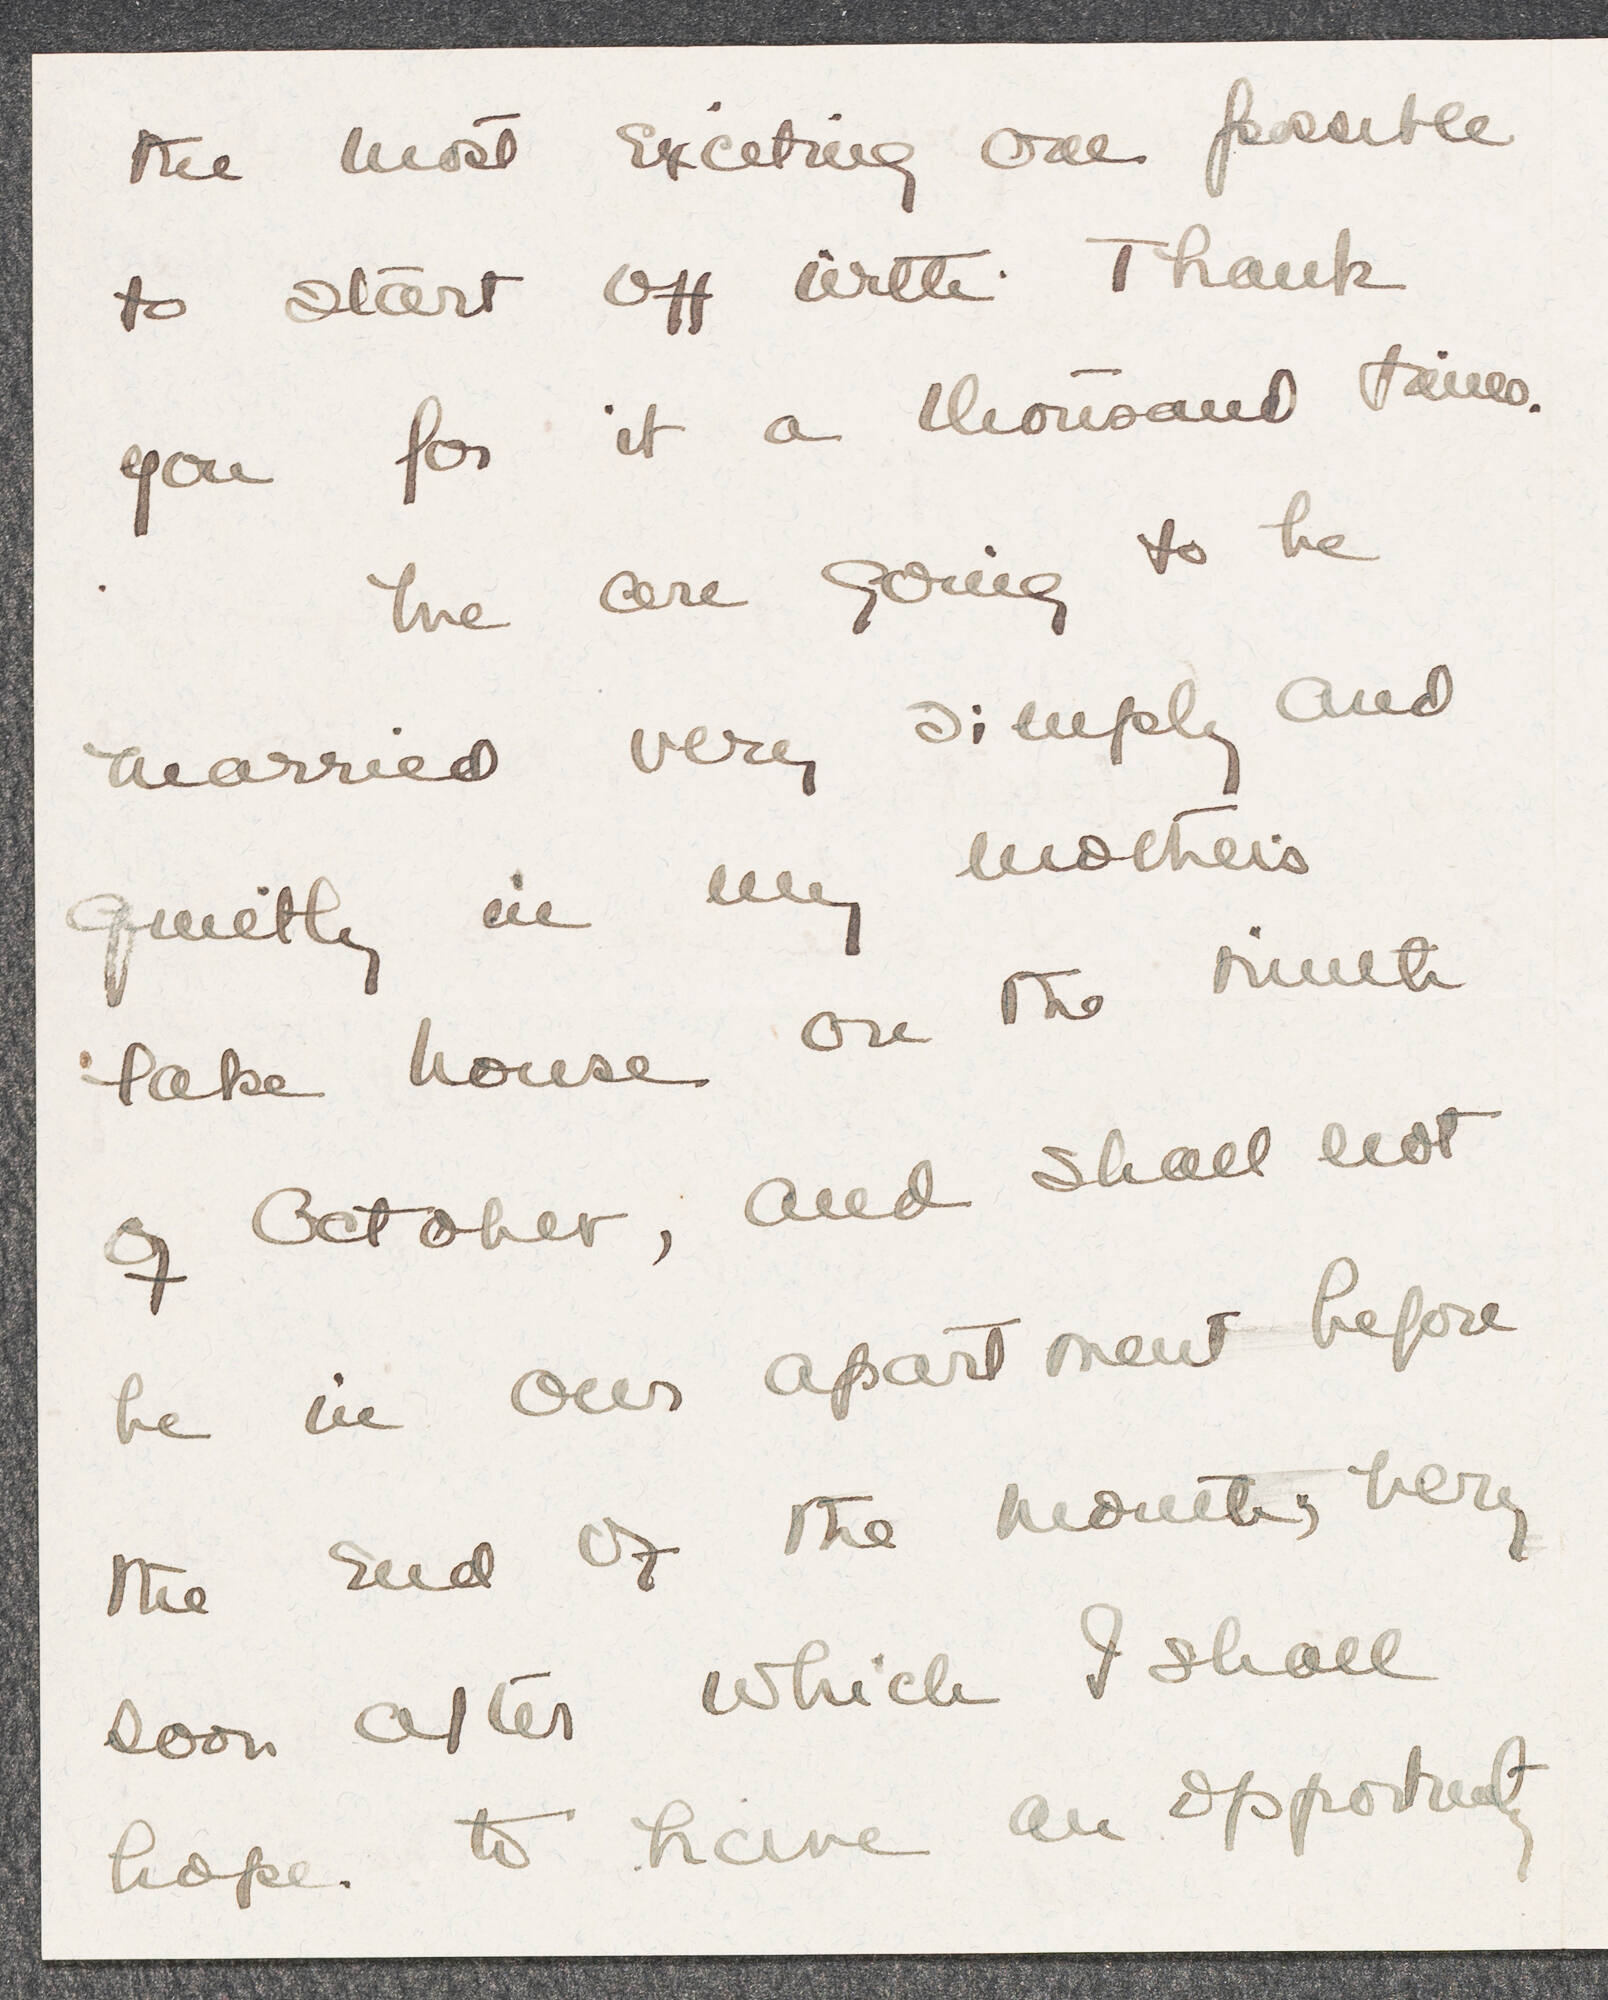 the most exciting one possible
to start off with. Thank
you for it a thousand times.
We are going to be
married very simply and
quietly in my mother's
lake house on the ninth
of October, and shall not
be in our apartment before
the end of the month; very
soon after which I shall
hope to have an opportunity